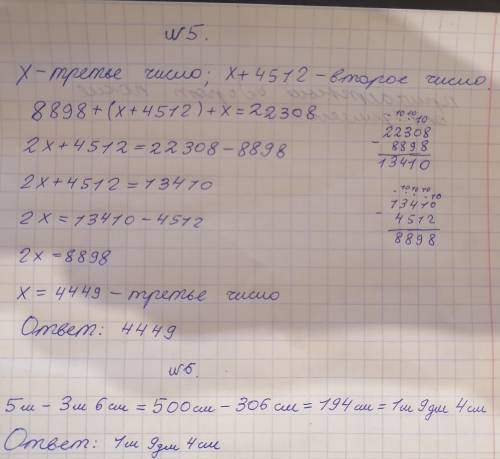 №5.
x – третье число; x + 4512 – второе число.
8898 + (x + 4512) + x = 22308
2x + 4512 = 22308 – 8898
2x + 4512 = 13410
2x = 13410 – 4512
2x = 8898
x = 4449 – третье число
Ответ: 4449
10 10 10
22308
- 8898
13410
10 10 10 10
13410
- 4512
8898
№6.
5м – 3м 6см = 500см – 306см = 194см = 1м 9дм 4см
Ответ: 1м 9дм 4см